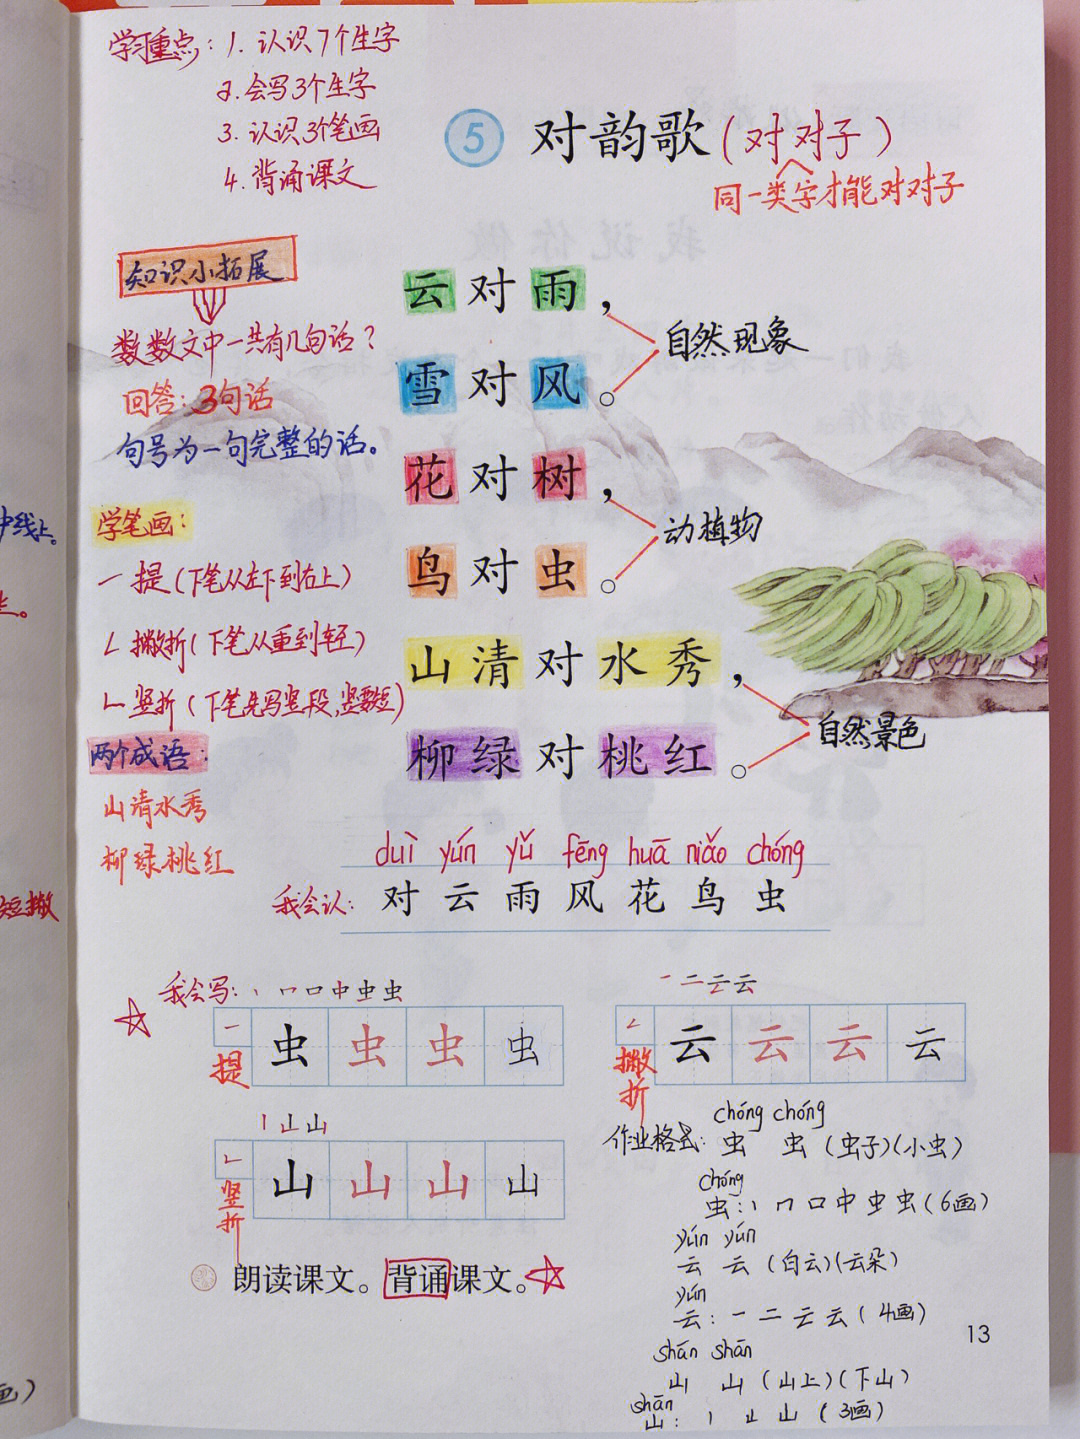 学习重点：1. 认识7个生字
2. 会写3个生字
3. 认识3个笔画
4. 背诵课文
5 对韵歌（对对子）
同一类字才能对对子
知识小拓展
数数文中一共有几句话？
回答：3句话
句号为一句完整的话。
云对雨，
雪对风。
自然现象
花对树，
鸟对虫。
动植物
山清对水秀，
柳绿对桃红。
自然景色
中线上。
学笔画：
㇀提（下笔从左下到右上）
𠃋撇折（下笔从重到轻）
𠃊竖折（下笔先写竖段，竖要短）
两个成语：
山清水秀
柳绿桃红
短撇
duì yún yǔ fēng huā niǎo chóng
我会认：对云雨风花鸟虫
我会写：丨 𠃍 口 中 虫 虫
㇀ 虫 虫 虫 虫
提
一 二 云 云
𠃋 云 云 云 云
撇折
丨 𠃊 山
𠃊 山 山 山 山
竖折
朗读课文。背诵课文。
chóng chóng
作业格式：虫 虫（虫子）（小虫）
chóng
虫：丨 𠃍 口 中 虫 虫（6画）
yún yún
云 云（白云）（云朵）
yún
云：一 二 云 云（4画）
shān shān
山 山（山上）（下山）
shān
山：丨 𠃊 山（3画）
画）
13